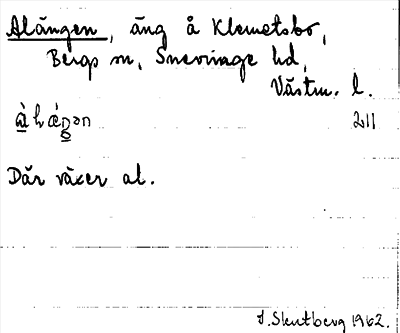 Alängen, äng å Klemetsbo,
Bergs sn, Snevringe hd,
Västm. l.
211
Där växer al.
J. Skutberg 1962.